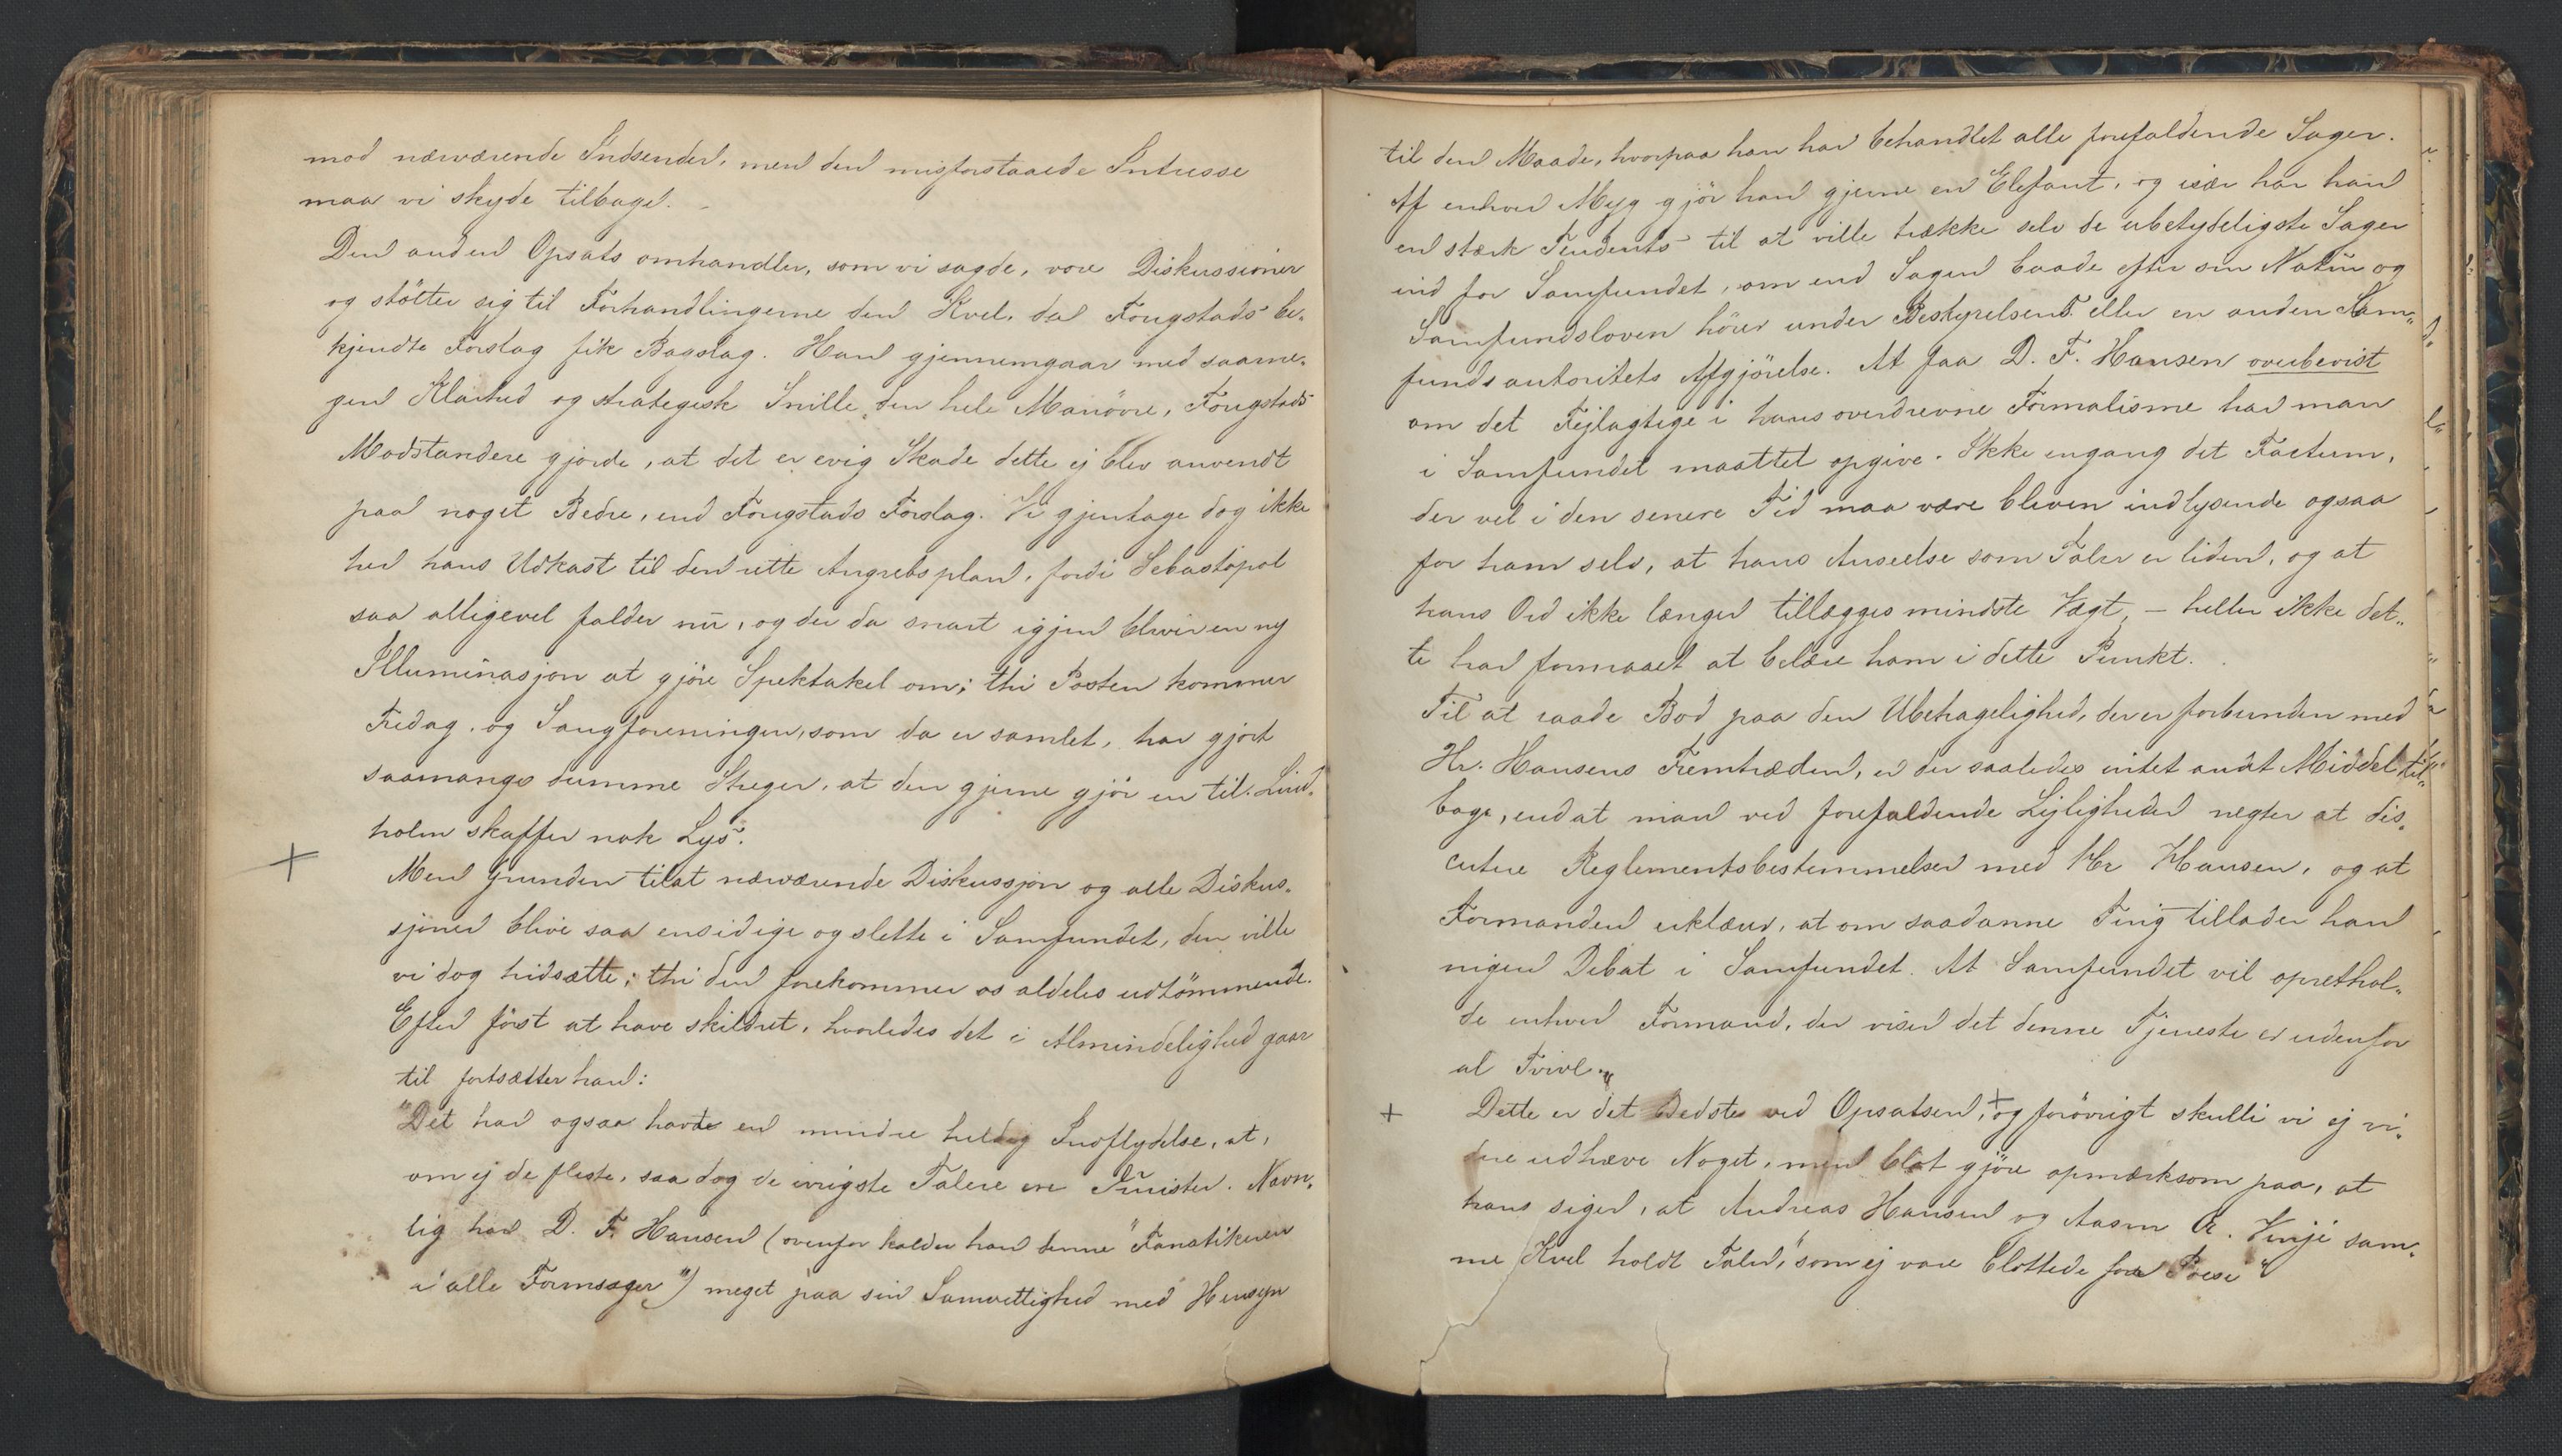 mod nærværende Indsender, men den misforstaaede Intresse
maa vi skyde tilbage. –
Den anden Opsats omhandler, som vi sagde, vore Diskussioner
og støtter sig til Forhandlingerne den Kvel, da Fougstads be-
kjendte Forslag fik Bagslag. Han gjennemgaar med saame-
gen Klarhed og strategisk Snille den hele Manøvre, Fougstads
Modstandere gjorde, at det er evig Skade dette ej blev anvendt
paa noget Bedre, end Fougstads Forslag. Vi gjentage dog ikke
her hans Udkast til den rette Angrebsplan, fordi Sebastopol
saa alligevel falder nu, og der da snart igjen bliver en ny
Illuminasjon at gjøre Spektakel om; thi Posten kommer
Fredag, og Sangforeningen, som da er samlet, har gjort
saamange dumme Streger, at den gjerne gjör en til. Lind-
holm skaffer nok Lys.
+
Men Grunden til at nærværende Diskussjon og alle Diskus-
sjoner blive saa ensidige og slette i Samfundet, den ville
vi dog hidsætte; thi den forekommer os aldeles udtömmende.
Efter först at have skildret, hvorledes det i Almindelighed gaar
til fortsætter han:
"Det har ogsaa havt en mindre heldig Indflydelse, at,
om ej de fleste, saa dog de ivrigste Talere ere Jurister. Navn-
lig har D. F. Hansen (ovenfor kalder han denne "Fanatikeren
i alle Formsager") meget paa sin Samvittighed med Hensyn
til den Maade, hvorpaa han har behandlet alle forefaldende Sager.
Af enhver Myg gjör han gjerne en Elefant, og især har han
en stærk Tendents til at ville trække selv de ubetydeligste Sager
ind for Samfundet, om end Sagen baade efter sin Natur og
Samfundsloven hörer under Bestyrelsens eller en anden Sam-
fundsautoritets Afgjörelse. At faa D. F. Hansen overbevist
om det Fejlagtige i hans overdrevne Formalisme har man
i Samfundet maattet opgive. Ikke engang det Factum,
der vel i den senere Tid maa være bleven indlysende ogsaa
for ham selv, at hans Anseelse som Taler er liden, og at
hans Ord ikke længer tillægges mindste Vægt, – heller ikke det-
te har formaaet at belære ham i dette Punkt.
Til at raade Bod paa den Ubehagelighed, der er forbunden med
Hr. Hansens Fremtræden, er der saaledes intet andt Middel til-
bage, end at man ved forefaldende Lejligheder negter at dis-
cutere Reglementsbestemmelser med Hr Hansen, og at
Formanden erklærer, at om saadanne Ting tillader han
nigen Debat i Samfundet. At Samfundet vil oprethol-
de enhver Formand, der viser det denne Tjeneste er udenfor
al Tvivl."
+ Dette er det Bedste ved Opsatsen, + og forövrigt skulle vi ej vi-
dere udhæve Noget, men blot gjöre opmærksom paa, at
hans siger, at Andreas Hansen og Aasm O. Vinje sam-
me Kvel holdt Taler, "som ej vare blottede for Poesi"